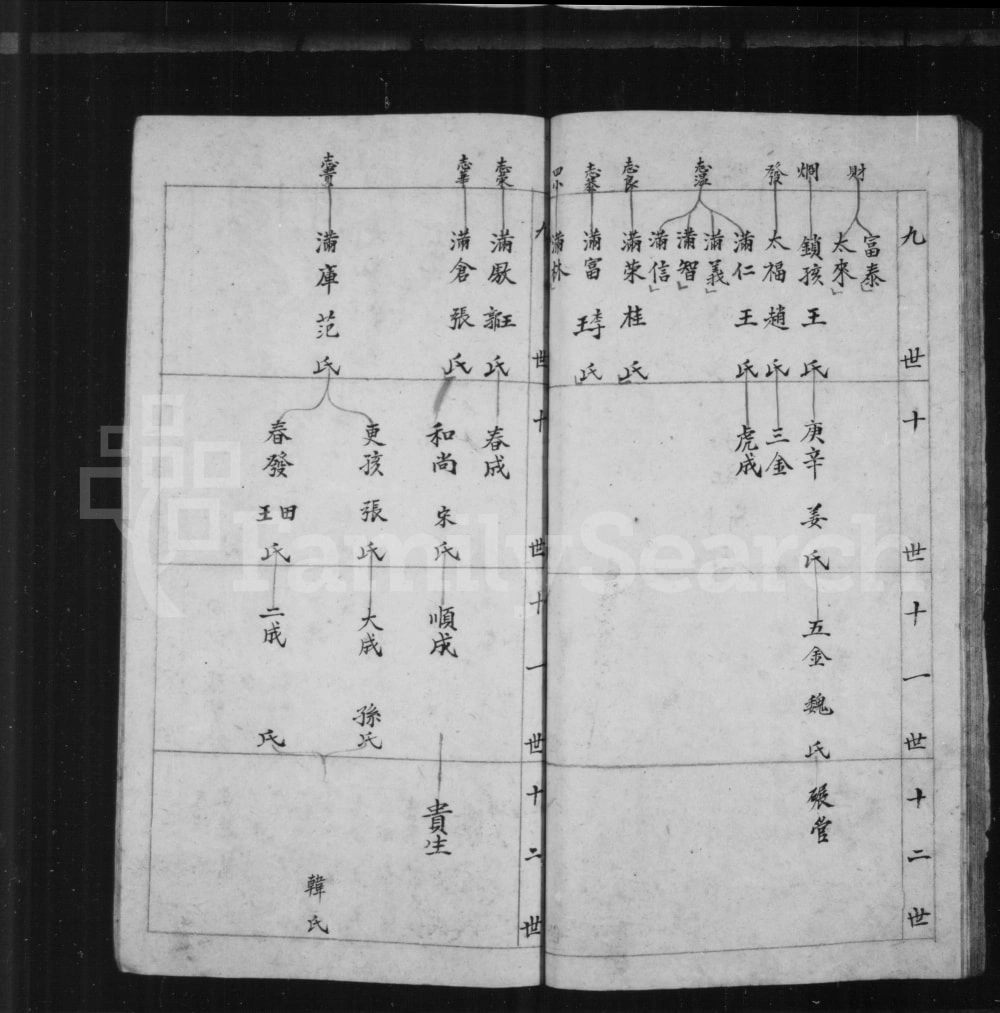 九世
十世
十一世
十二世
財
富泰
太來
炯
鎖孩 王氏
庚辛 姜氏
五金 魏氏
碾管
發
太福 趙氏
三金
志温
滿仁 王氏
虎成
滿義
滿智
滿信
志良
滿荣 桂氏
滿富 李王氏
四小
滿林
九世
十世
十一世
十二世
滿厫 王郭氏
春成
滿倉 張氏
和尚 宋氏
順成
貴生
滿庫 范氏
更孩 張氏
大成 孫氏
春發 田王氏
二成 氏
韓氏
FamilySearch